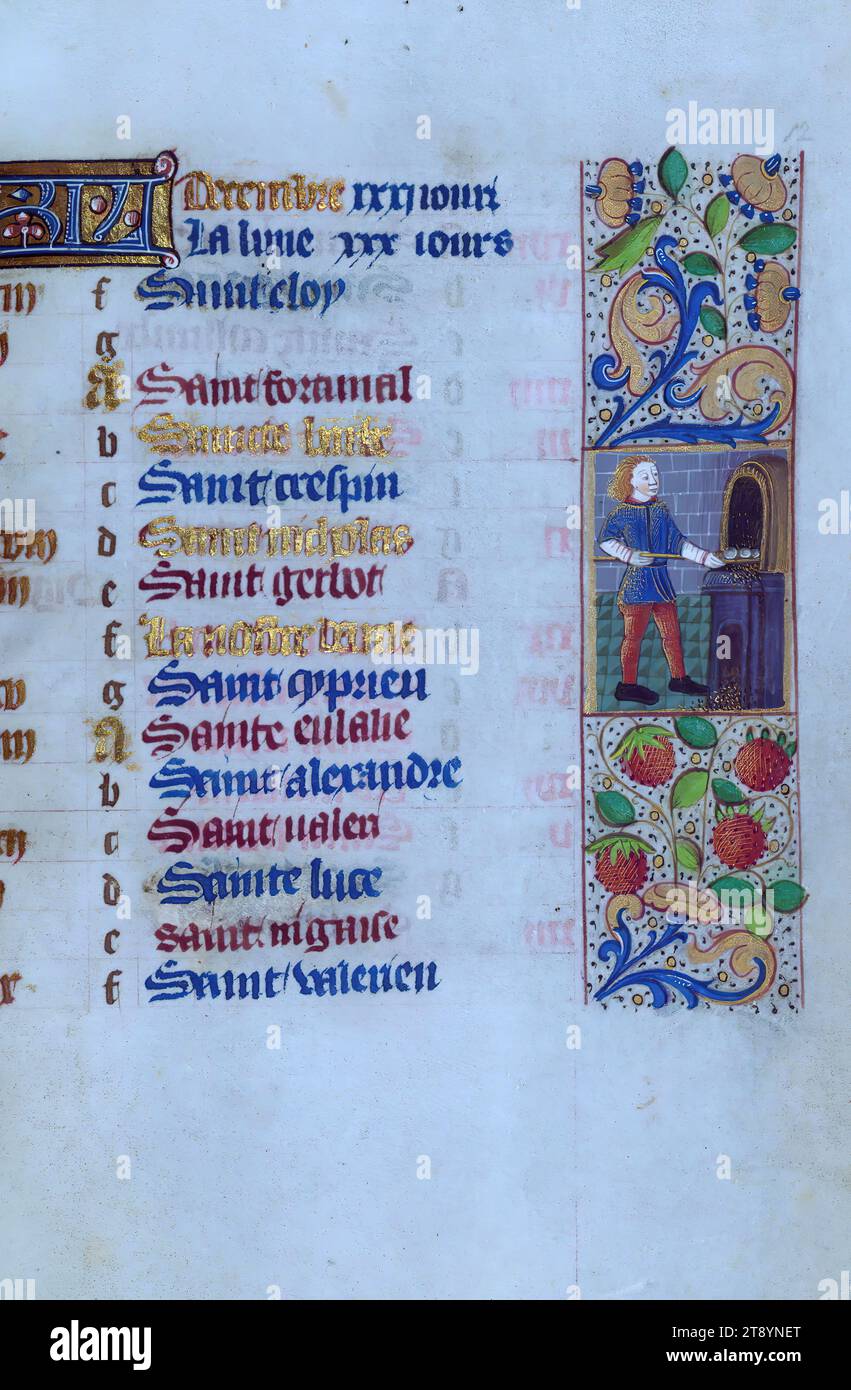 Decembre xxxj iour
La lune xxx iours
f Saint eloy
g
A Saint fortunal
b Saincte barbe
c Saint crespin
d Saint nicholas
e Saint gerbot
f La nostre dame
g Saint cyprien
A Sainte eulalie
b Saint alexandre
c Saint valeri
d Sainte luce
e saint nigaise
f Saint valerien
12
alamy
Image ID: 2T8YNET
www.alamy.com